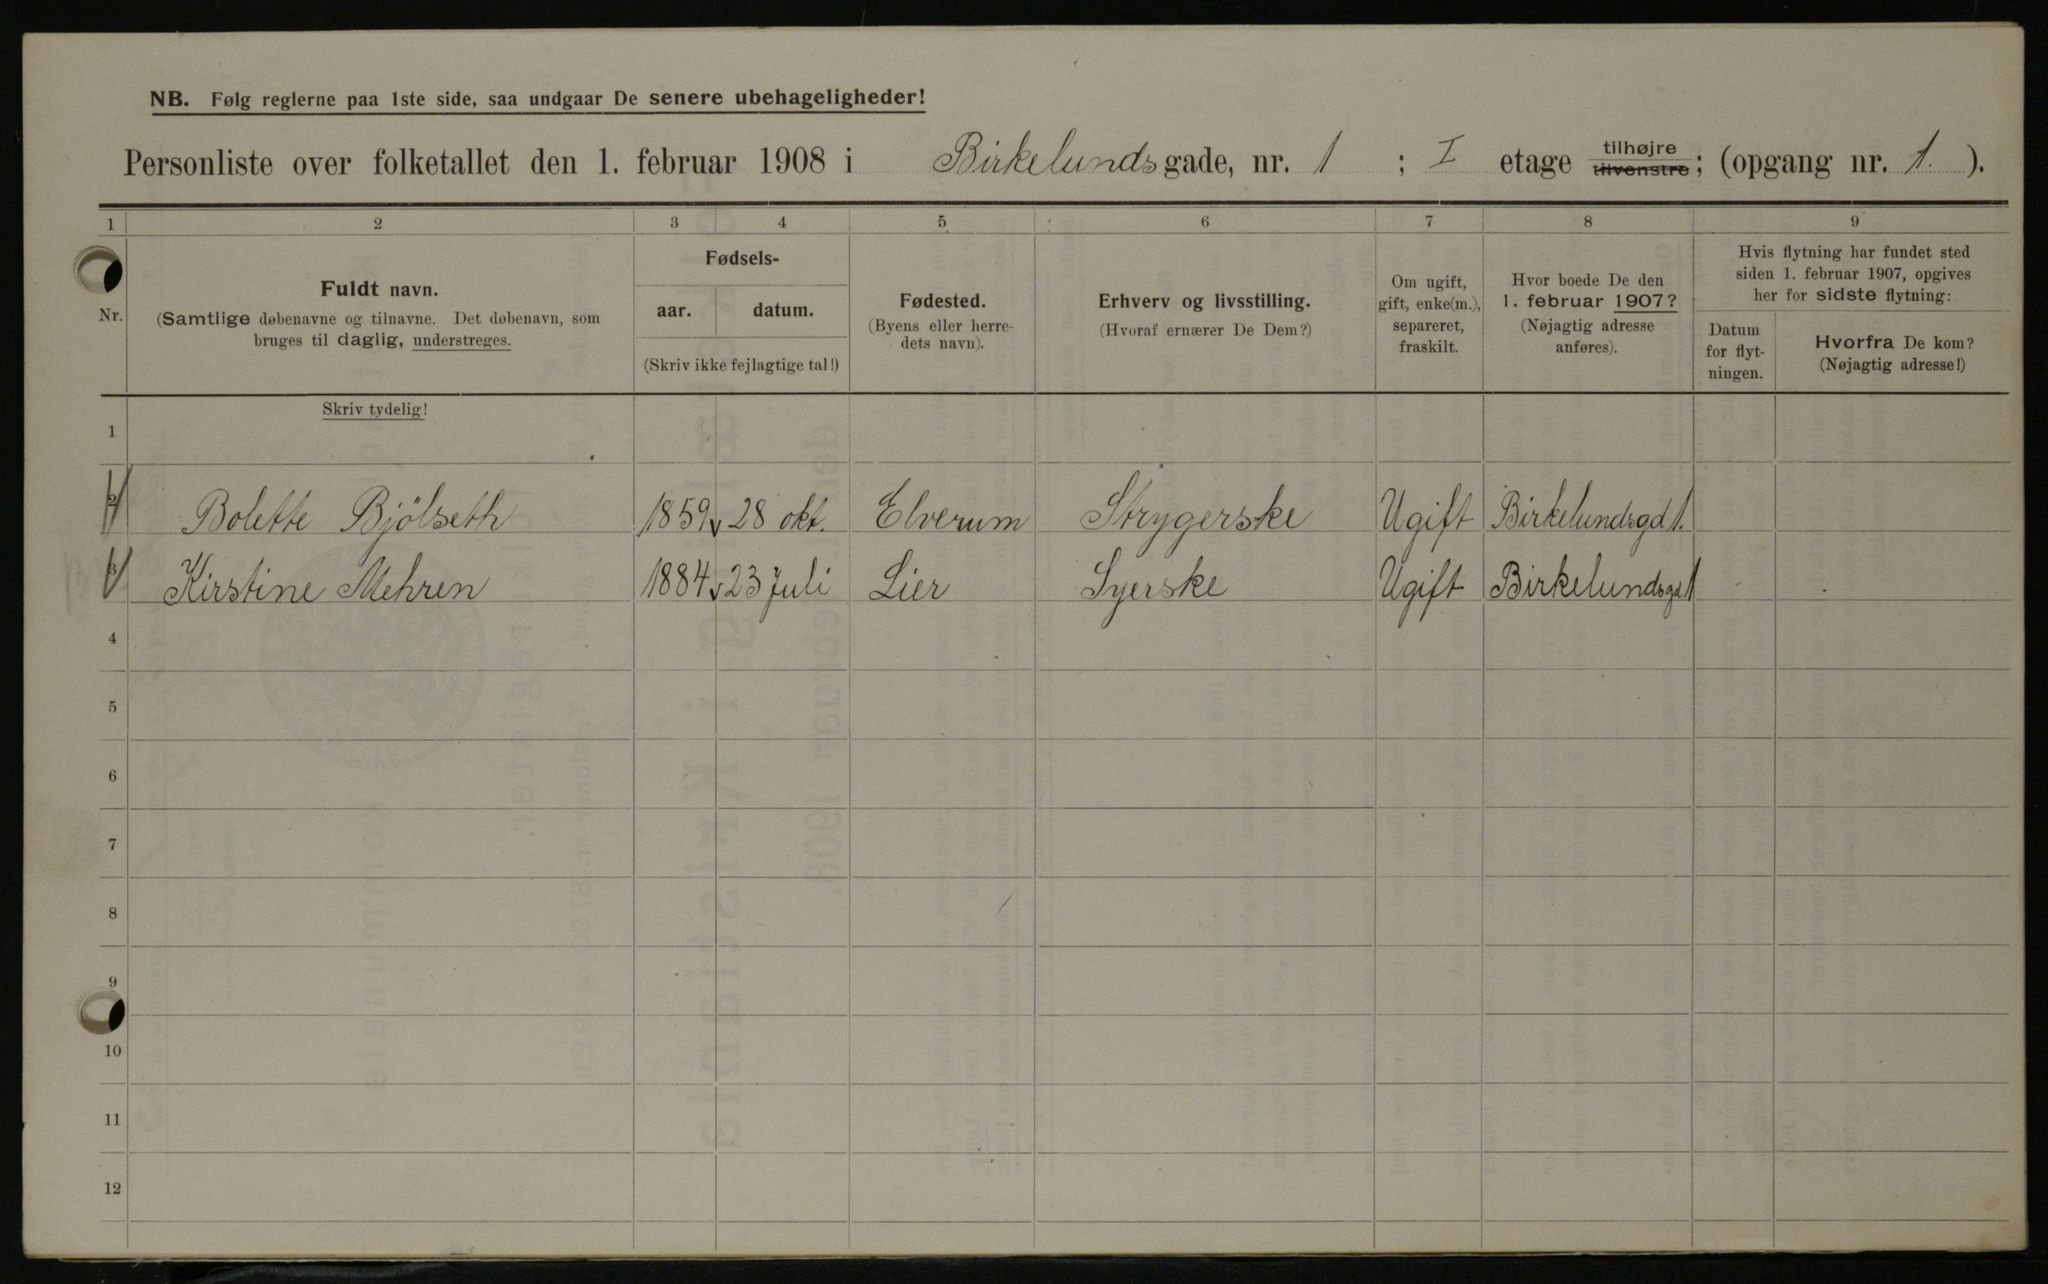 NB. Følg reglerne paa 1ste side, saa undgaar De senere ubehageligheder!
Personliste over folketallet den 1. februar 1908 i Birkelundsgade, nr. 1 ; I etage tilhøjre tilvenstre; (opgang nr. 1. ).
1 2 3 4 5 6 7 8 9
Nr.
Fuldt navn.
(Samtlige døbenavne og tilnavne. Det døbenavn, som
bruges til daglig, understreges.
Fødsels-
aar. datum.
(Skriv ikke fejlagtige tal!)
Fødested.
(Byens eller herre-
dets navn).
Erhverv og livsstilling.
(Hvoraf ernærer De Dem?)
Om ugift,
gift, enke(m.),
separeret,
fraskilt.
Hvor boede De den
1. februar 1907?
(Nøjagtig adresse
anføres).
Hvis flytning har fundet sted
siden 1. februar 1907, opgives
her for sidste flytning:
Datum
for flyt-
ningen.
Hvorfra De kom?
(Nøjagtig adresse!)
Skriv tydelig!
1
2 Bolette Bjölseth 1859 28 okt. Elverum Strygerske Ugift Birkelundsgd 1.
3 Kirstine Mehren 1884 23 Juli Lier Syerske Ugift Birkelundsgd 1
4
5
6
7
8
9
10
11
12